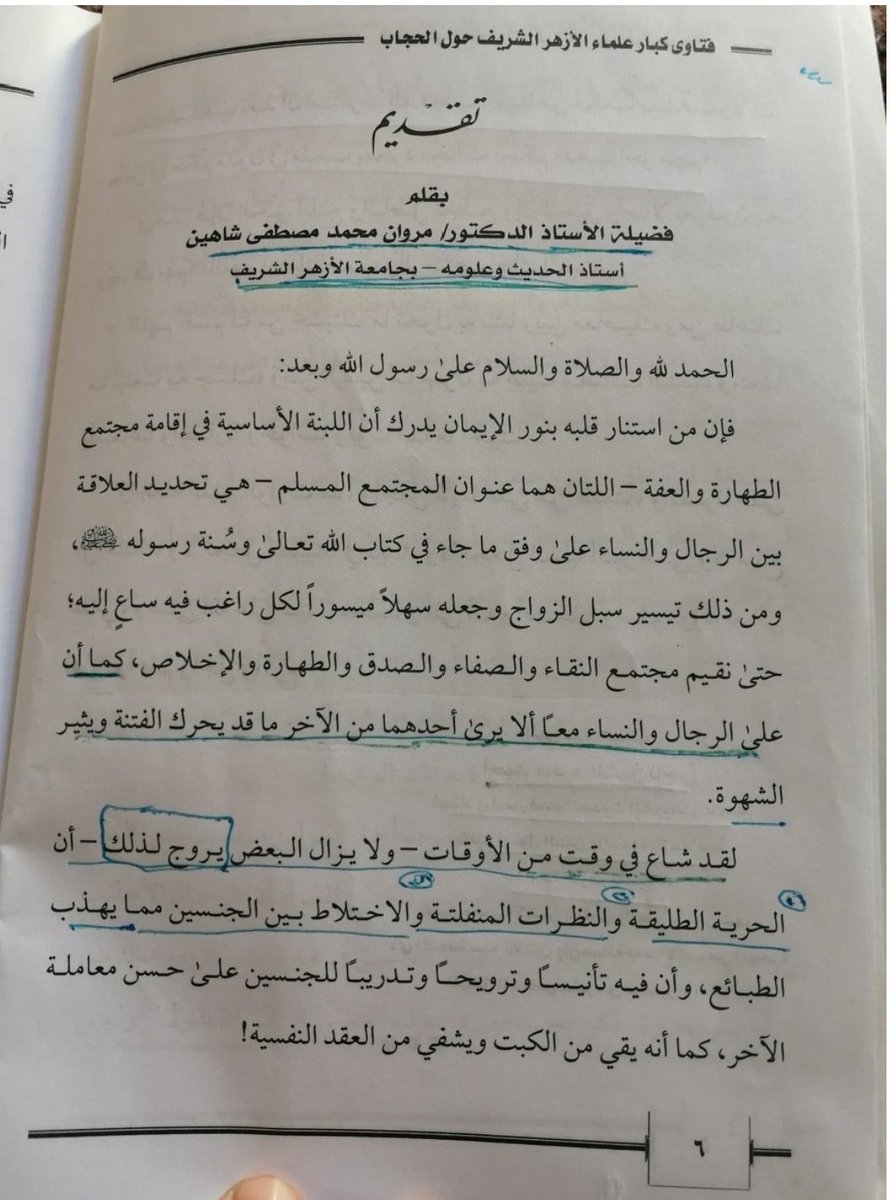 فتاوى كبار علماء الأزهر الشريف حول الحجاب
تقديم
بقلم
فضيلة الأستاذ الدكتور/ مروان محمد مصطفى شاهين
أستاذ الحديث وعلومه – بجامعة الأزهر الشريف
الحمد لله والصلاة والسلام علىٰ رسول الله وبعد:
فإن من استنار قلبه بنور الإيمان يدرك أن اللبنة الأساسية في إقامة مجتمع
الطهارة والعفة – اللتان هما عنوان المجتمع المسلم – هي تحديد العلاقة
بين الرجال والنساء علىٰ وفق ما جاء في كتاب الله تعالىٰ وسُنة رسوله ﷺ،
ومن ذلك تيسير سبل الزواج وجعله سهلاً ميسوراً لكل راغب فيه ساعٍ إليه؛
حتىٰ نقيم مجتمع النقاء والصفاء والصدق والطهارة والإخلاص، كما أن
علىٰ الرجال والنساء معاً ألا يرىٰ أحدهما من الآخر ما قد يحرك الفتنة ويثير
الشهوة.
لقد شاع في وقت من الأوقات – ولا يزال البعض يروج لذلك – أن
الحرية الطليقة والنظرات المنفلتة والاختلاط بين الجنسين مما يهذب
الطبائع، وأن فيه تأنيساً وترويحاً وتدريباً للجنسين علىٰ حسن معاملة
الآخر، كما أنه يقي من الكبت ويشفي من العقد النفسية!
٦